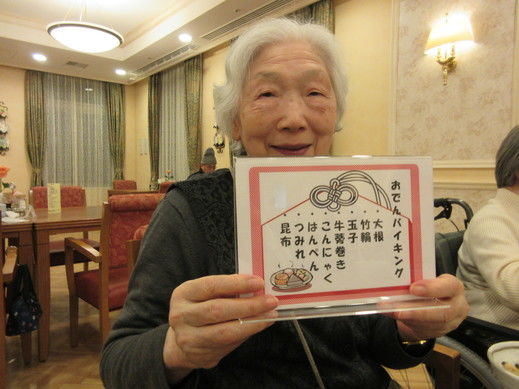 おでんバイキング
大根
竹輪
玉子
牛蒡巻き
こんにゃく
はんぺん
つみれ
昆布